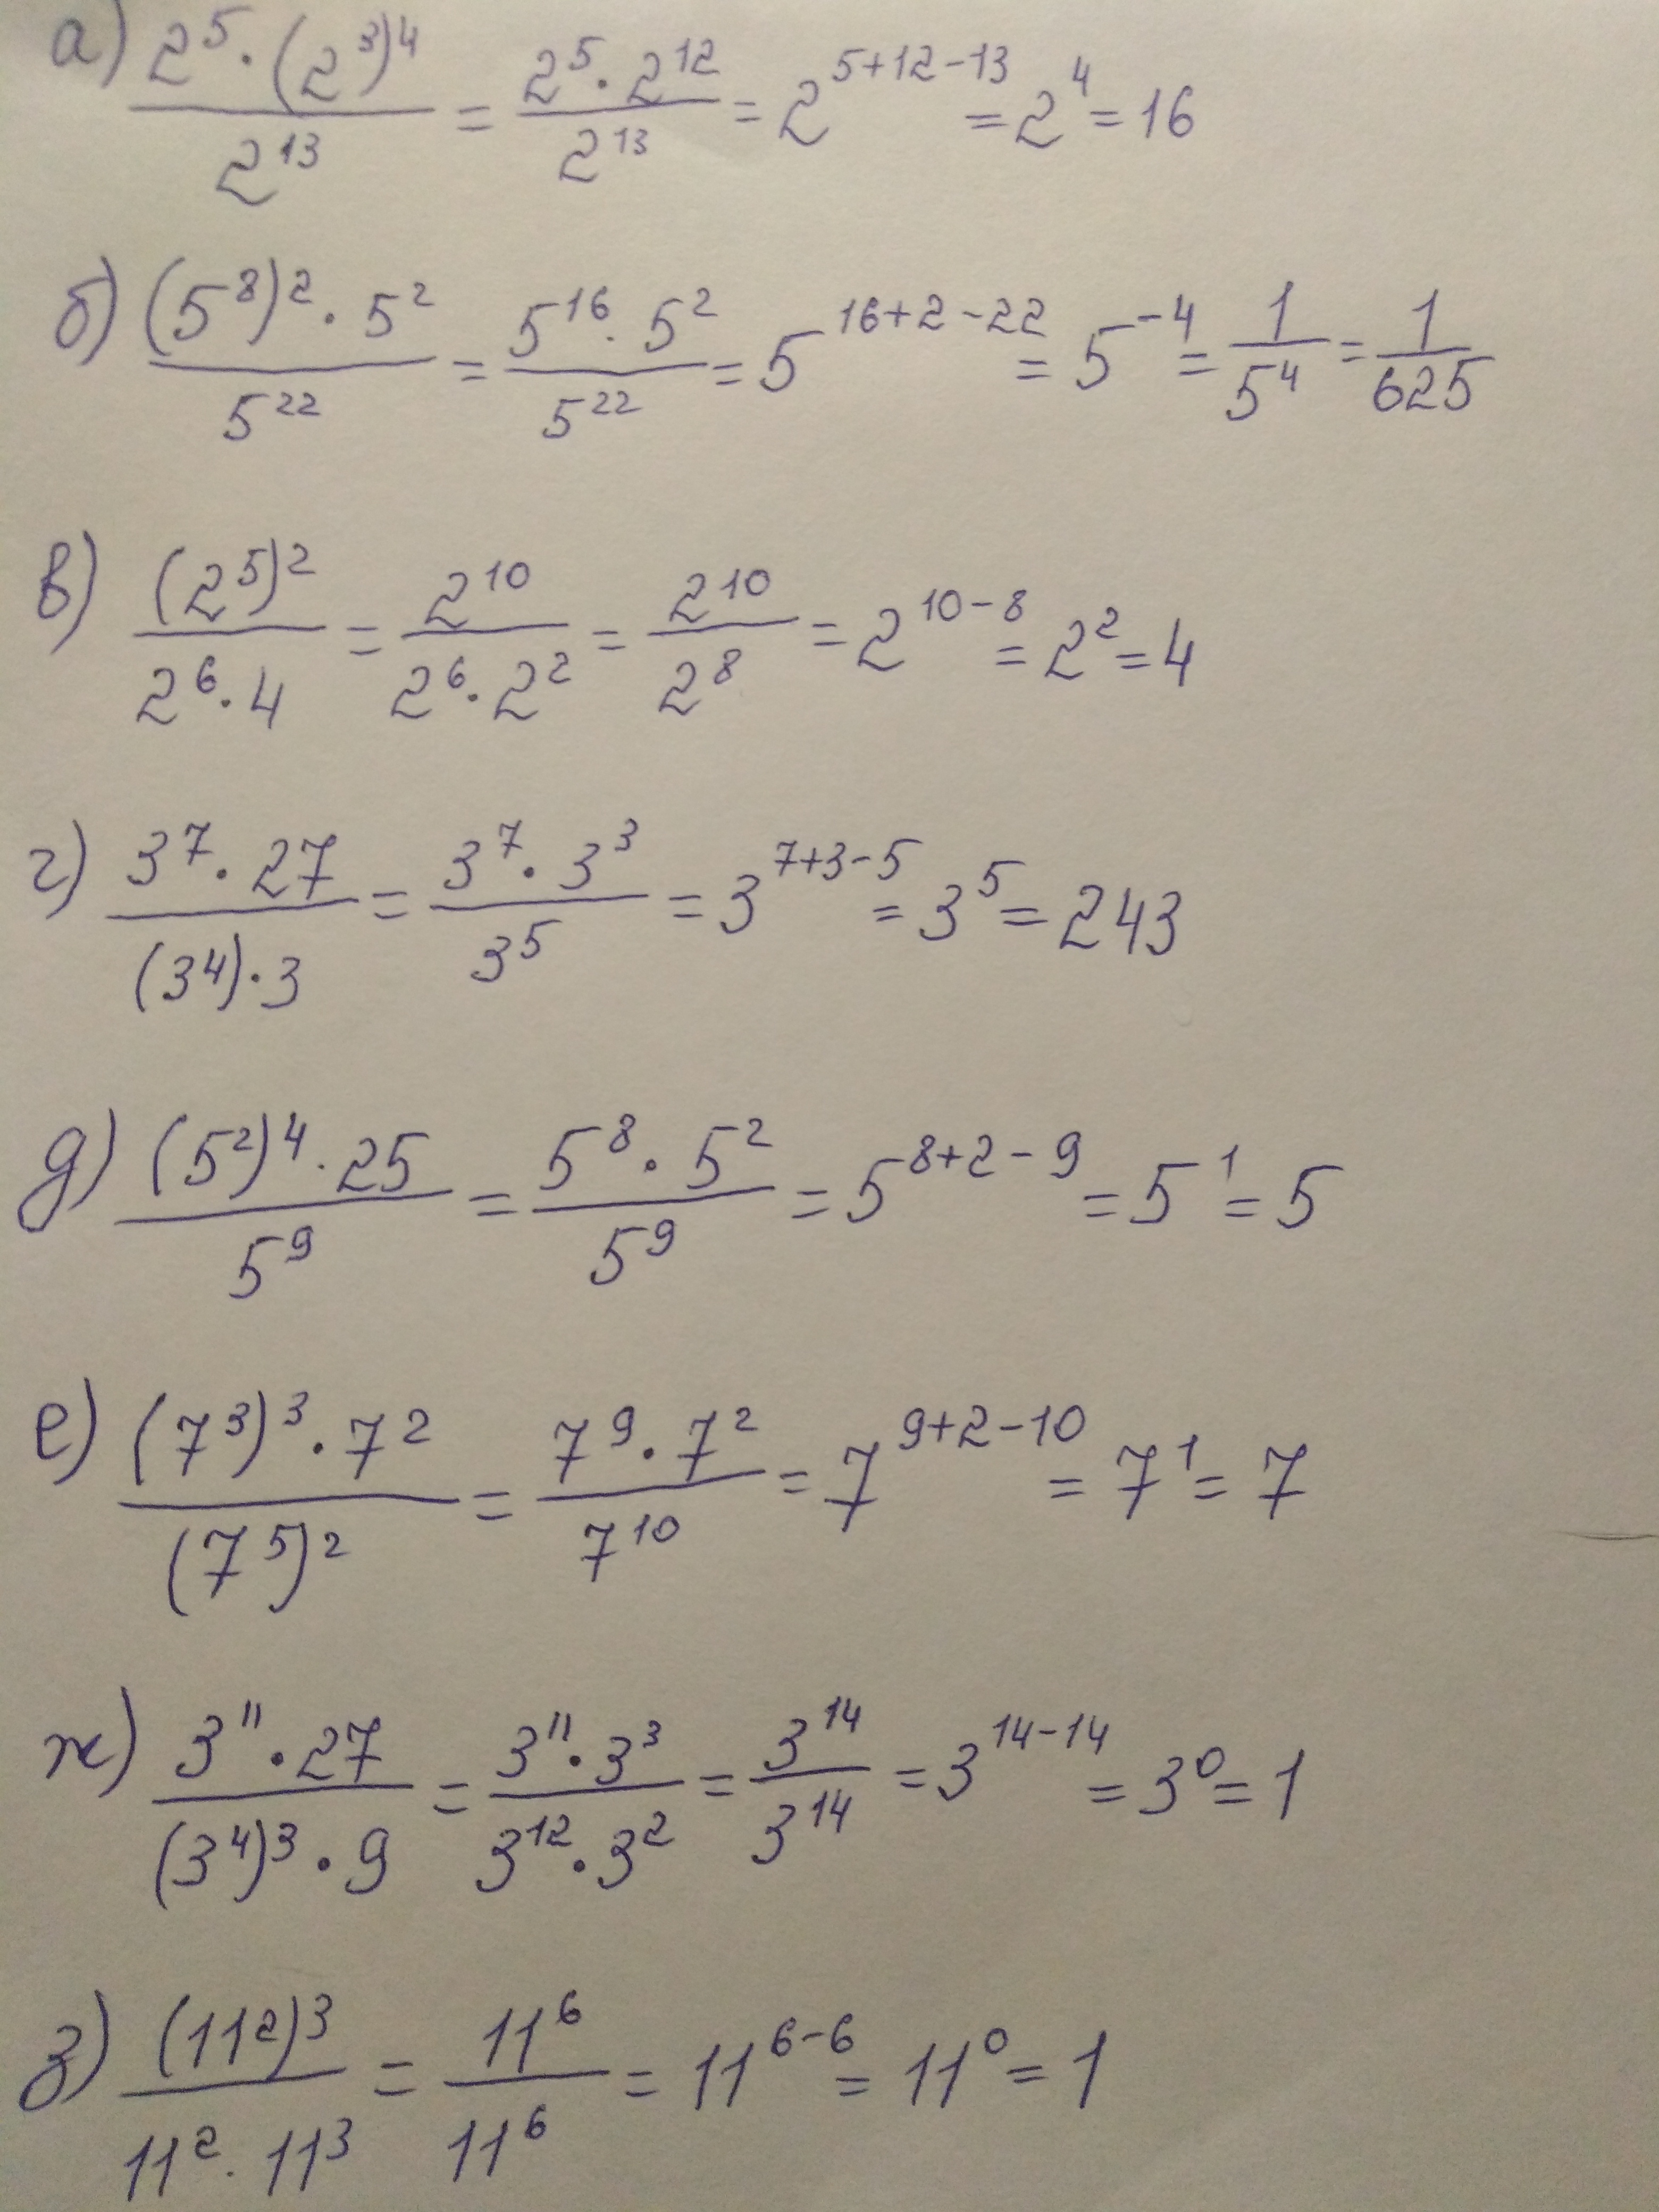 а) (2⁵ · (2³)⁴) / 2¹³ = (2⁵ · 2¹²) / 2¹³ = 2⁵⁺¹²⁻¹³ = 2⁴ = 16
б) ((5⁸)² · 5²) / 5²² = (5¹⁶ · 5²) / 5²² = 5¹⁶⁺²⁻²² = 5⁻⁴ = 1 / 5⁴ = 1 / 625
в) (2⁵)² / (2⁶ · 4) = 2¹⁰ / (2⁶ · 2²) = 2¹⁰ / 2⁸ = 2¹⁰⁻⁸ = 2² = 4
г) (3⁷ · 27) / ((3⁴) · 3) = (3⁷ · 3³) / 3⁵ = 3⁷⁺³⁻⁵ = 3⁵ = 243
д) ((5²)⁴ · 25) / 5⁹ = (5⁸ · 5²) / 5⁹ = 5⁸⁺²⁻⁹ = 5¹ = 5
е) ((7³)³ · 7²) / (7⁵)² = (7⁹ · 7²) / 7¹⁰ = 7⁹⁺²⁻¹⁰ = 7¹ = 7
ж) (3¹¹ · 27) / ((3⁴)³ · 9) = (3¹¹ · 3³) / (3¹² · 3²) = 3¹⁴ / 3¹⁴ = 3¹⁴⁻¹⁴ = 3⁰ = 1
з) (11²)³ / (11² · 11³) = 11⁶ / 11⁶ = 11⁶⁻⁶ = 11⁰ = 1